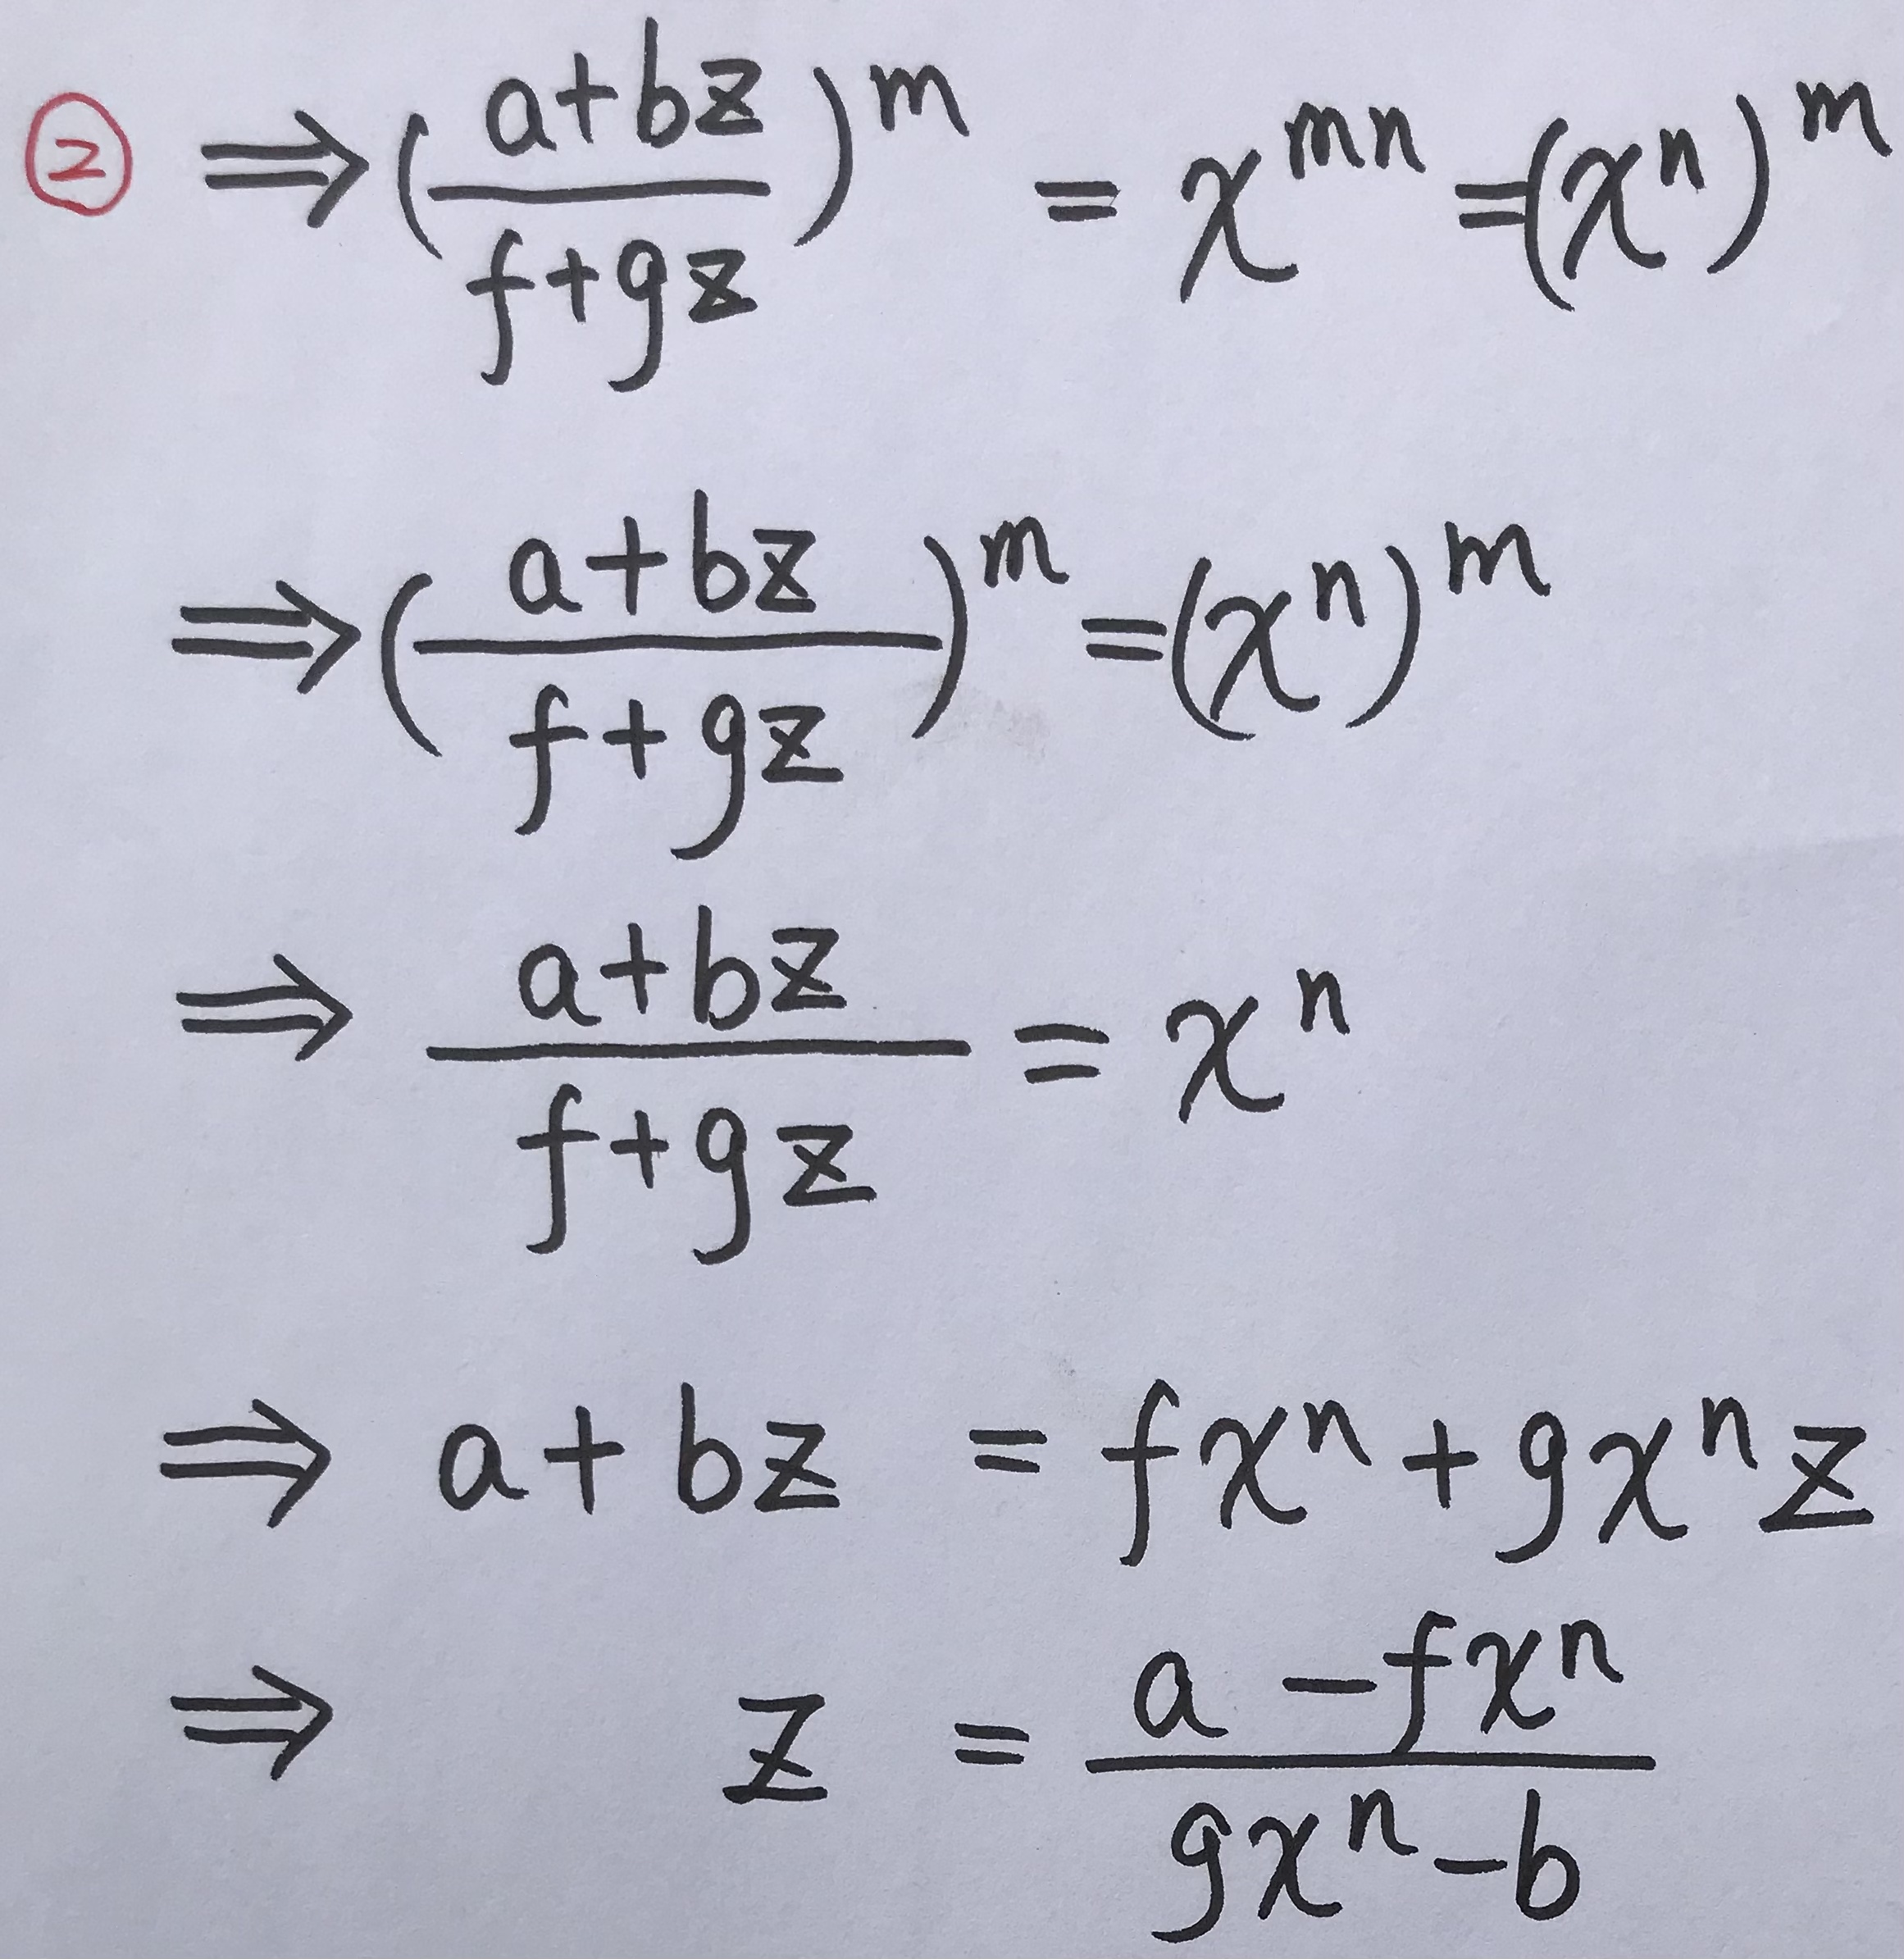 ② ⟹ ( (a+bz)/(f+gz) )^m = x^{mn} = (x^n)^m
⟹ ( (a+bz)/(f+gz) )^m = (x^n)^m
⟹ (a+bz)/(f+gz) = x^n
⟹ a+bz = fx^n + gx^n z
⟹ z = (a-fx^n)/(gx^n-b)